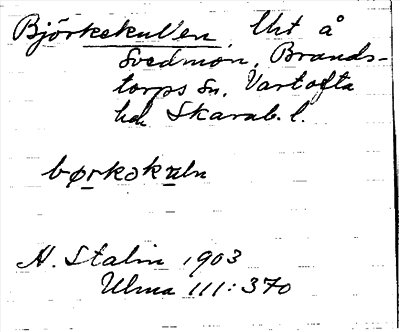 Björkekullen, Utt å
Svedmon, Brands-
torps sn, Vartofta
hd, Skarab. l.
børkəkuln
H. Stalin 1903
Ulma 111:370